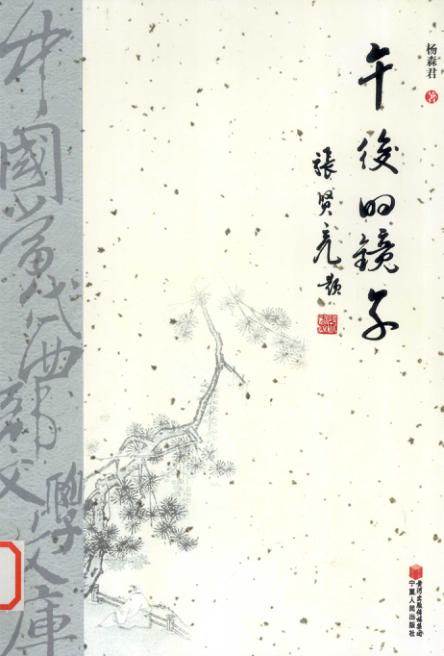 中國當代西部文學文庫
杨森君 著
午後的鏡子
張贤亮題
黄河出版传媒集团
宁夏人民出版社